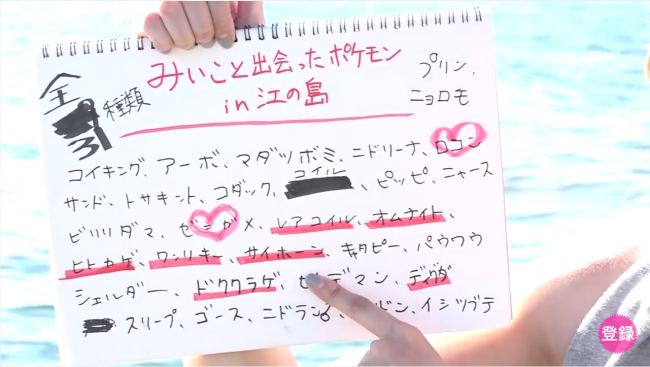 全
31
種類
みいこと出会ったポケモン
in 江の島
プリン、
ニョロモ
コイキング、アーボ、マダツボミ、ニドリーナ、ロコン
サンド、トサキント、コダック、コイル、ピッピ、ニャース
ビリリダマ、ゼニガメ、レアコイル、オムナイト、
ヒトカゲ、ワンリキー、サイホーン、キャタピー、パウワウ
シェルダー、ドククラゲ、デマン、ディグダ
スリープ、ゴース、ニドラン♂、ドン、イシツブテ
登録